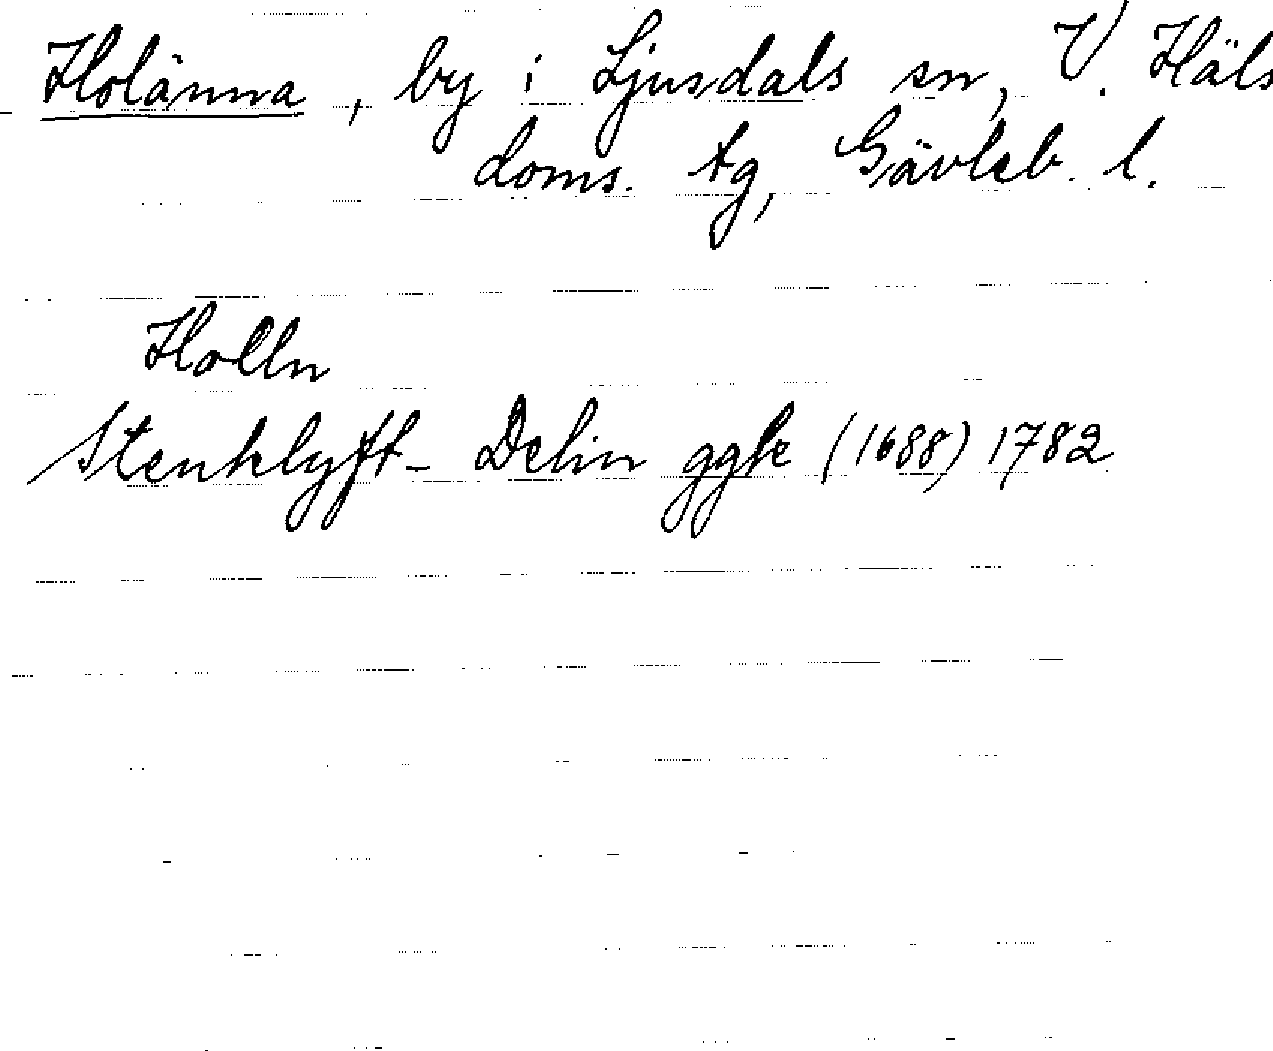 Holänna, by i Ljusdals sn, V. Häls
doms. tg, Gävleb. l.
Holln
Stenklyft- Delin ggk (1688) 1782